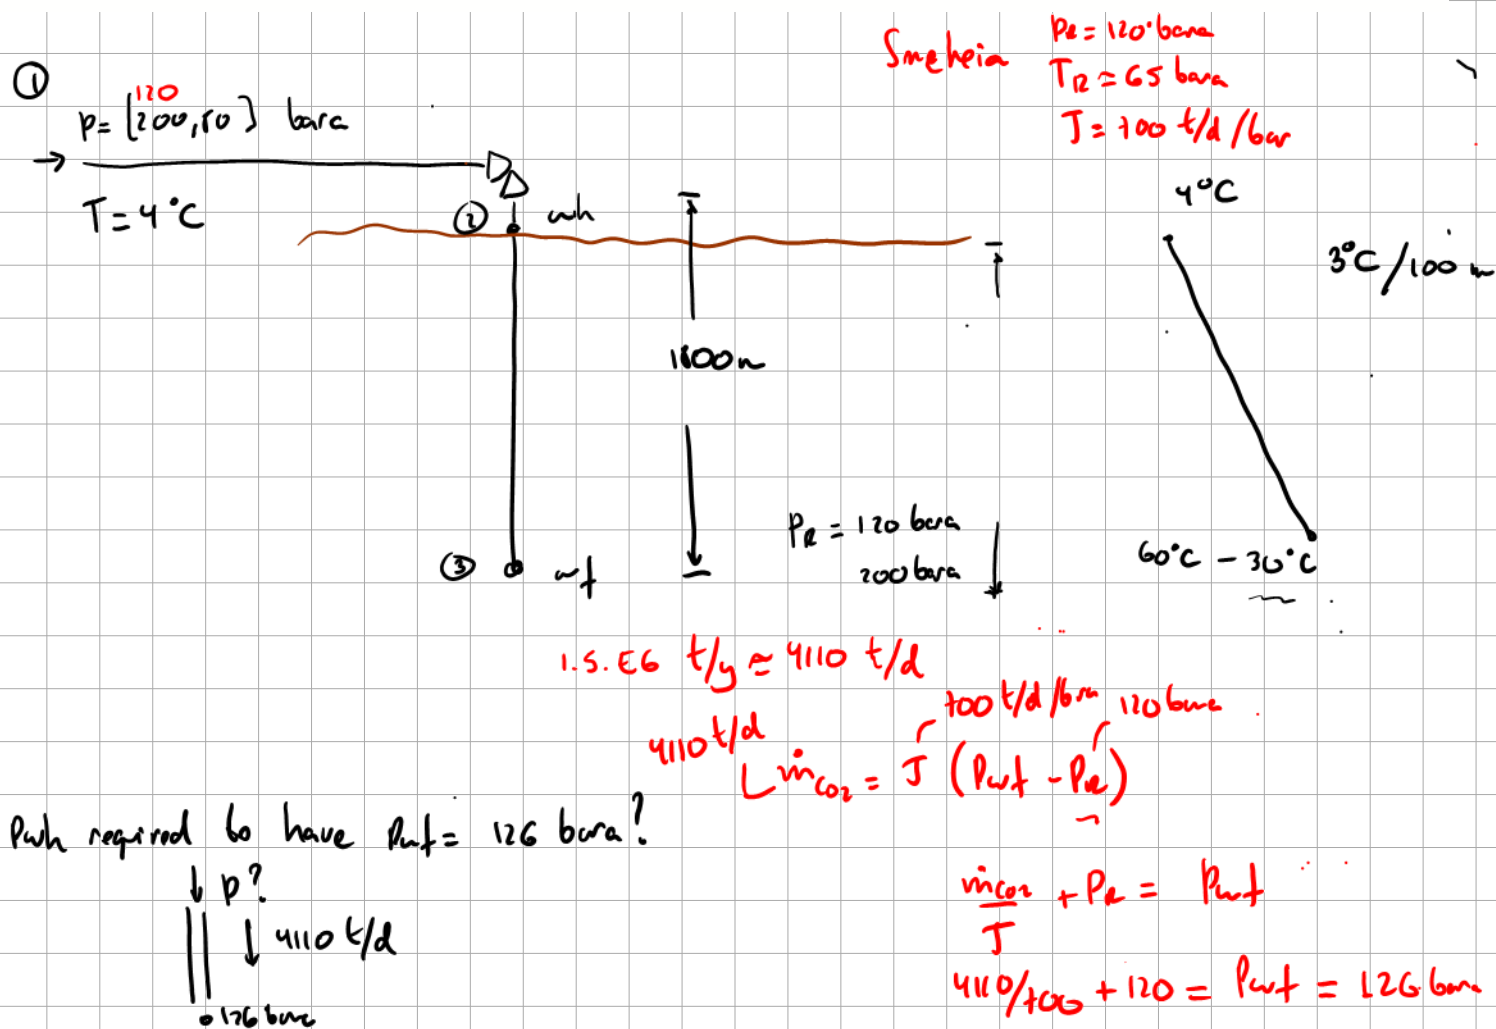 ①
120
p= [200,80] bara
→
T = 4 °C
② wh
1800m
③ wf
PR = 120 bara
200 bara
Smeheia
PR = 120 bara
TR = 65 bara
J = 700 t/d/bar
4°C
3°C/100 m
60°C - 30°C
1.5.E6 t/y ≈ 4110 t/d
700 t/d/bara 120 bara
4110 t/d
ṁCO2 = J (Pwf - PR)
ṁCO2/J + PR = Pwf
4110/700 + 120 = Pwf = 126 bara
Pwh required to have Pwf = 126 bara?
↓ p?
↓ 4110 t/d
126 bara